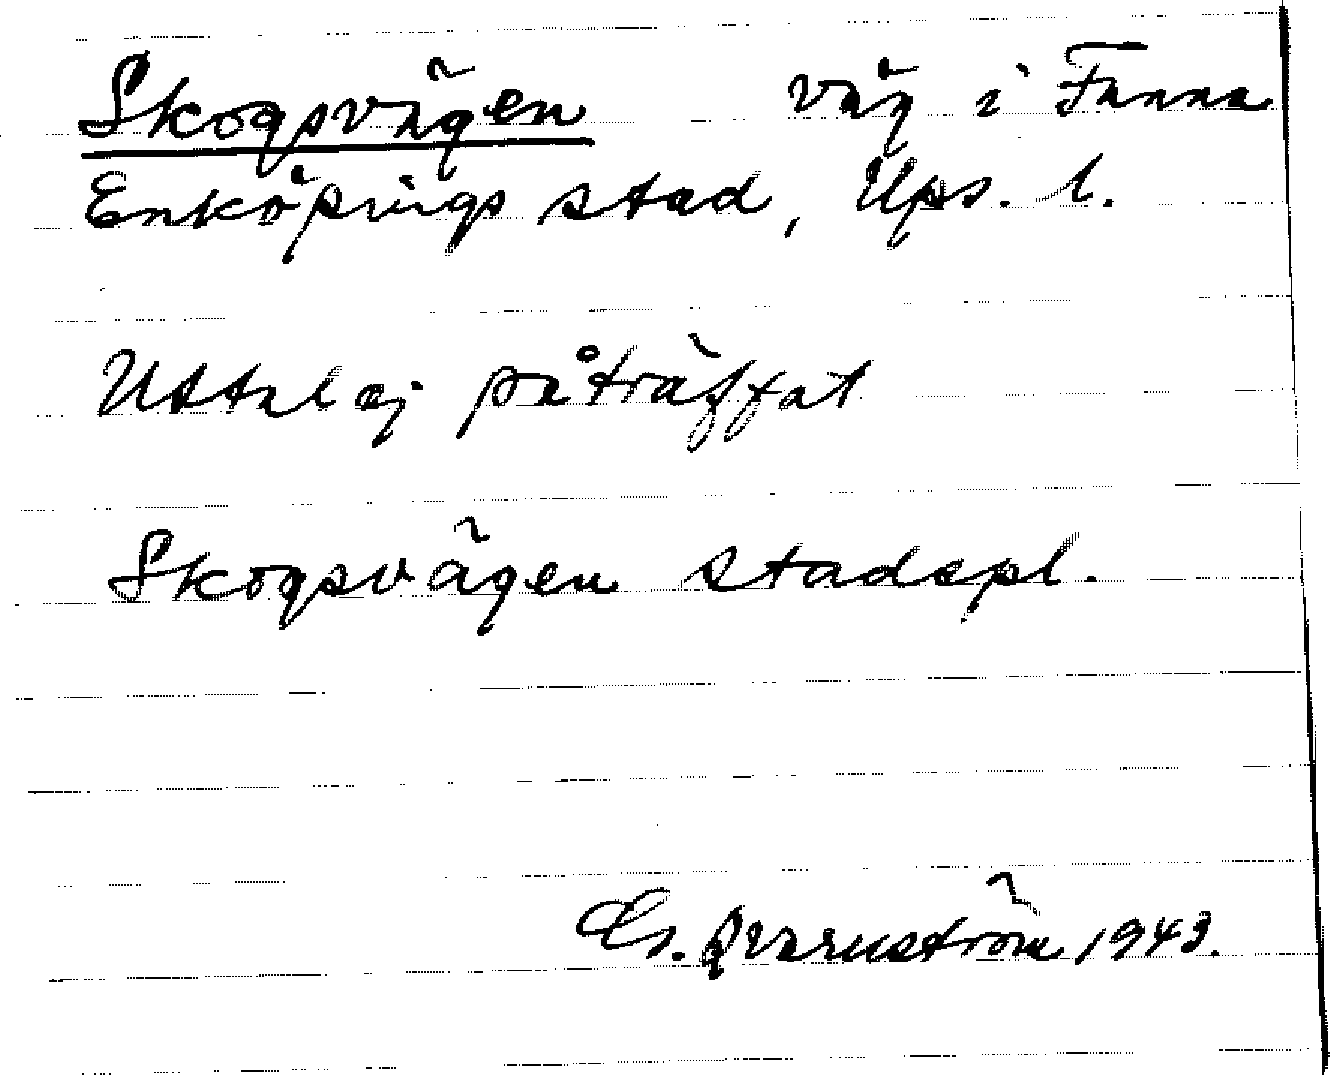 Skogsvägen väg i Fanna
Enköpings stad, Ups. l.
Uttal ej påträffat
Skogsvägen stadspl.
Qvarnström 1943.